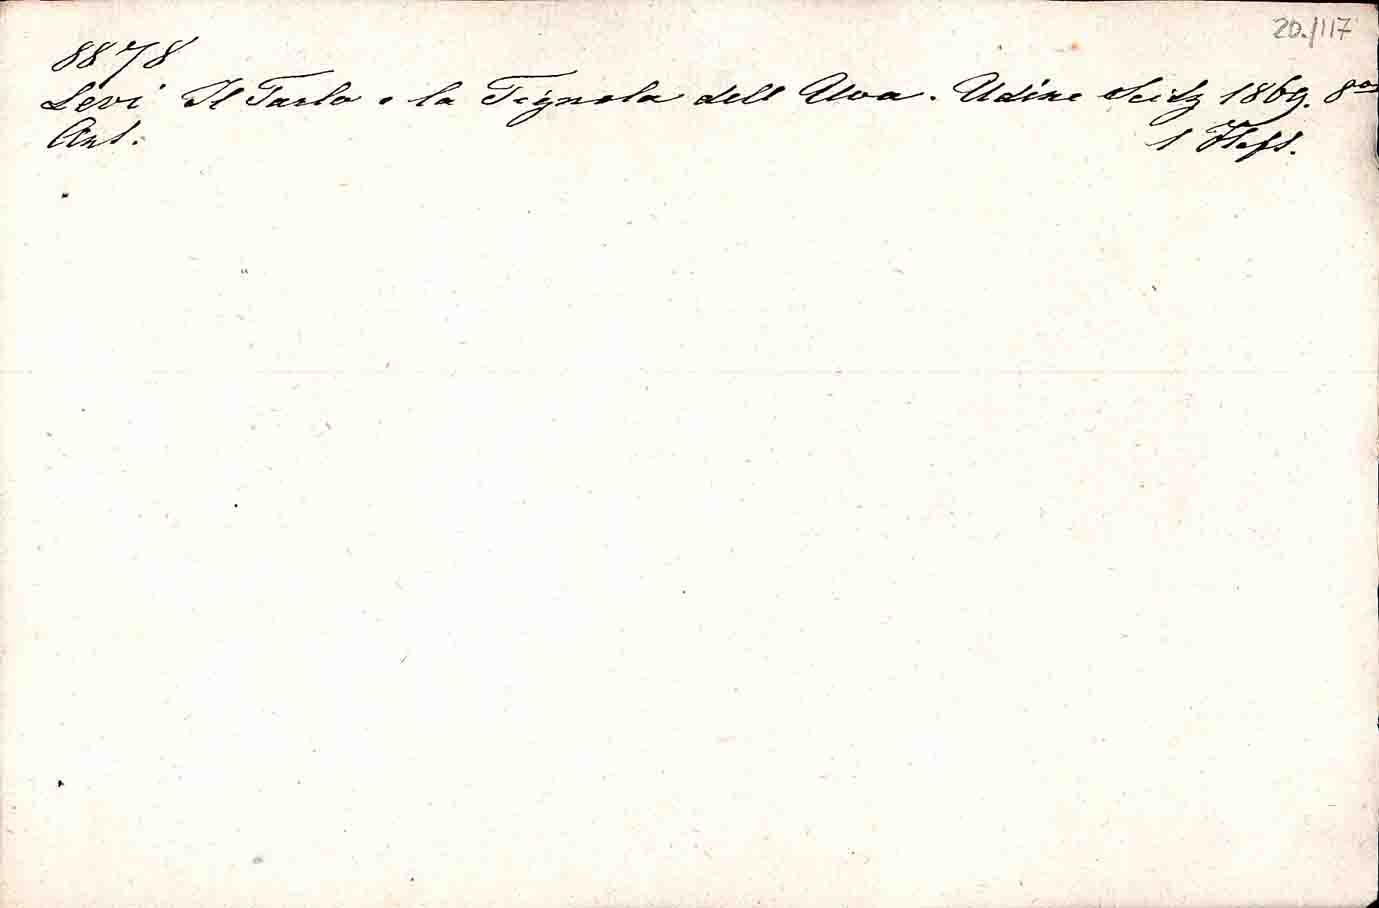 20./117
8878
Levi Il Tarlo e la Tignola dell Uva. Udine Seitz 1869. 8os
Ant. 1 Heft.